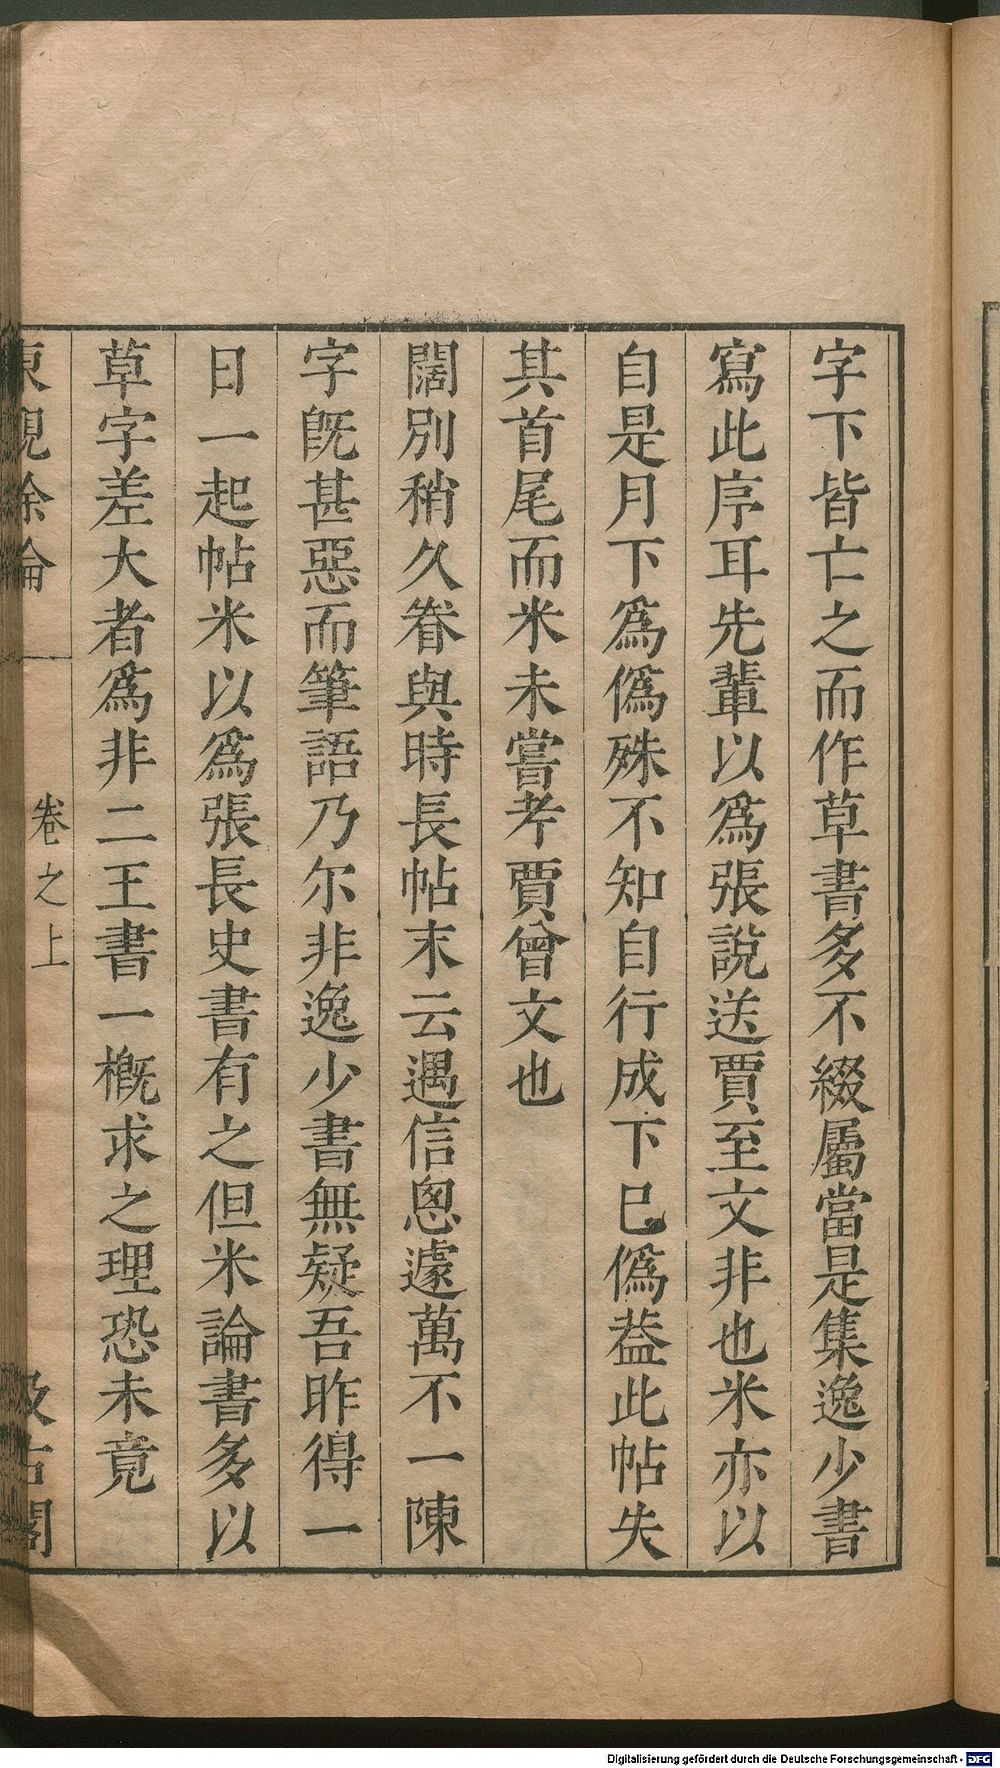 字下皆亡之而作草書多不綴屬當是集逸少書
寫此序耳先輩以爲張說送賈至文非也米亦以
自是月下爲僞殊不知自行成下已僞葢此帖失
其首尾而米未嘗考賈曾文也
闊別稍久眷與時長帖末云遇信悤遽萬不一陳
字旣甚惡而筆語乃尔非逸少書無疑吾昨得一
日一起帖米以爲張長史書有之但米論書多以
草字差大者爲非二王書一槪求之理恐未竟
東觀餘論
卷之上
汲古閣
Digitalisierung gefördert durch die Deutsche Forschungsgemeinschaft - DFG